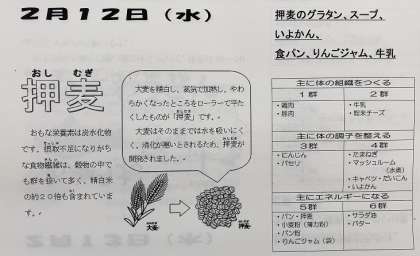 2月12日(水)
押麦のグラタン、スープ、
いよかん、
食パン、りんごジャム、牛乳
おし むぎ
押麦
おもな栄養素は炭水化物
です。摂取不足になりがち
な食物繊維は、穀物の中で
も群を抜いて多く、精白米
の約20倍も含まれていま
す。
大麦を精白し、蒸気で加熱し、やわ
らかくなったところをローラーで平た
くしたものが「押麦」です。
大麦はそのままでは水を吸いにく
く、消化が悪いとされるため、押麦が
開発されました。
大麦
押麦
主に体の組織をつくる
1群 2群
・鶏肉
・豚肉
・牛乳
・粉末チーズ
主に体の調子を整える
3群 4群
・にんじん
・パセリ
・たまねぎ
・マッシュルーム
(水煮)
・キャベツ・だいこん
・いよかん
主にエネルギーになる
5群 6群
・パン・押麦
・小麦粉(薄力粉)
・パン粉
・りんごジャム(袋)
・サラダ油
・バター